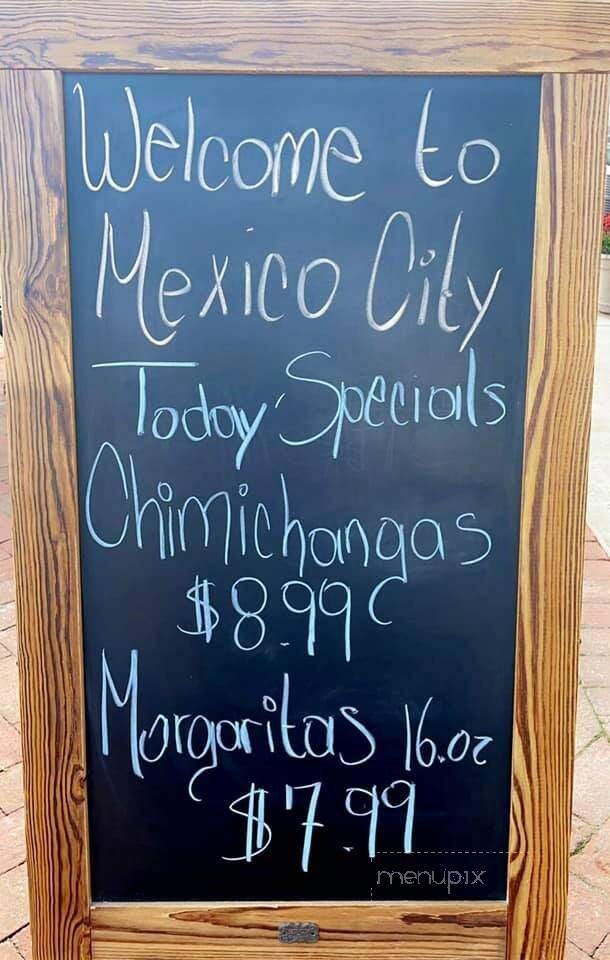 Welcome to
Mexico City
Today' Specials
Chimichangas
$8.99
Margaritas 16.oz
$7.99
menupix